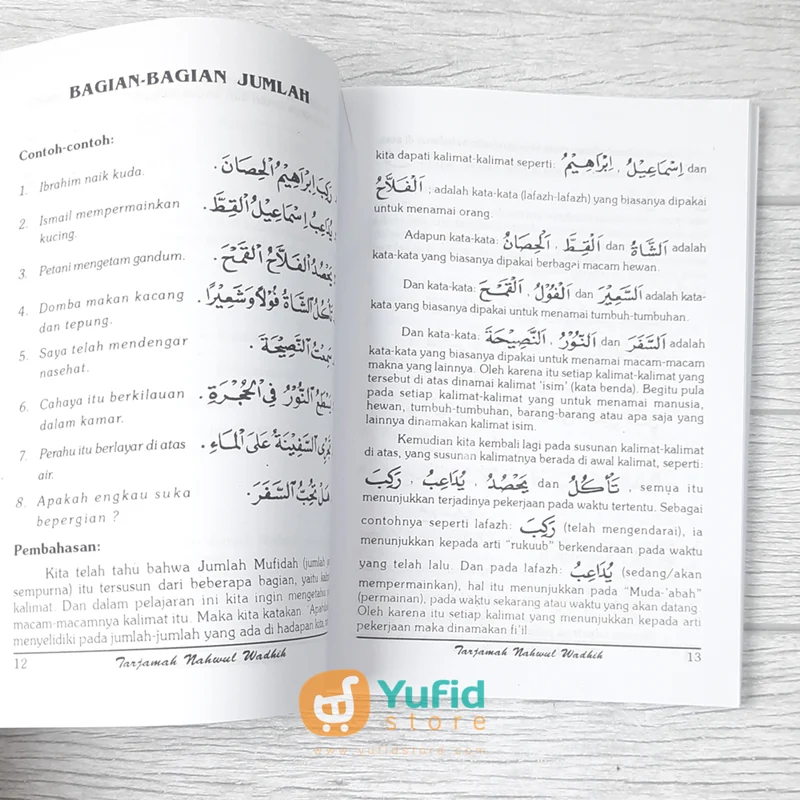 BAGIAN-BAGIAN JUMLAH
Contoh-contoh:
1. Ibrahim naik kuda. رَكِبَ اِبْرَاهِيْمُ الْحِصَانَ .
2. Ismail mempermainkan kucing. يُدَاعِبُ اِسْمَاعِيْلُ الْقِطَّ .
3. Petani mengetam gandum. يَحْصُدُ الْفَلَّاحُ الْقَمْحَ .
4. Domba makan kacang dan tepung. تَأْكُلُ الشَّاةُ فُوْلًا وَشَعِيْرًا .
5. Saya telah mendengar nasehat. سَمِعْتُ النَّصِيْحَةَ .
6. Cahaya itu berkilauan dalam kamar. النُّوْرُ فِي الْحُجْرَةِ .
7. Perahu itu berlayar di atas air. السَّفِيْنَةُ عَلَى الْمَاءِ .
8. Apakah engkau suka bepergian ? هَلْ تُحِبُّ السَّفَرَ .
Pembahasan:
Kita telah tahu bahwa Jumlah Mufidah (jumlah
sempurna) itu tersusun dari beberapa bagian, yaitu
kalimat. Dan dalam pelajaran ini kita ingin mengetahui
macam-macamnya kalimat itu. Maka kita katakan
menyelidiki pada jumlah-jumlah yang ada di hadapan kita,
12 Tarjamah Nahwul Wadhih
kita dapati kalimat-kalimat seperti: اِبْرَاهِيْمُ , اِسْمَاعِيْلُ dan
اَلْفَلَّاحُ ; adalah kata-kata (lafazh-lafazh) yang biasanya dipakai
untuk menamai orang.
Adapun kata-kata: اَلْحِصَانُ , اَلْقِطَّ dan اَلشَّاةُ adalah
kata-kata yang biasanya dipakai berbagai macam hewan.
Dan kata-kata: اَلْقَمْحَ , اَلْفُوْلُ dan اَلسَّعِيْرَ adalah kata-
kata yang biasanya dipakai untuk menamai tumbuh-tumbuhan.
Dan kata-kata: اَلنَّصِيْحَةَ , اَلنُّوْرُ dan اَلسَّفَرَ adalah
kata-kata yang biasanya dipakai untuk menamai macam-macam
makna yang lainnya. Oleh karena itu setiap kalimat-kalimat yang
tersebut di atas dinamai kalimat 'isim' (kata benda). Begitu pula
pada setiap kalimat-kalimat yang untuk menamai manusia,
hewan, tumbuh-tumbuhan, barang-barang atau apa saja yang
lainnya dinamakan kalimat isim.
Kemudian kita kembali lagi pada susunan kalimat-kalimat
di atas, yang susunan kalimatnya berada di awal kalimat, seperti:
رَكِبَ , يُدَاعِبُ , يَحْصُدُ dan تَأْكُلُ , semua itu
menunjukkan terjadinya pekerjaan pada waktu tertentu. Sebagai
contohnya seperti lafazh: رَكِبَ (telah mengendarai), ia
menunjukkan kepada arti "rukuub" berkendaraan pada waktu
yang telah lalu. Dan pada lafazh: يُدَاعِبُ (sedang/akan
mempermainkan), hal itu menunjukkan pada "Muda-'abah"
(permainan), pada waktu sekarang atau waktu yang akan datang
Oleh karena itu setiap kalimat yang menunjukkan kepada arti
pekerjaan maka dinamakan fi'il
Tarjamah Nahwul Wadhih 13
Yufid
store
www.yufidstore.com